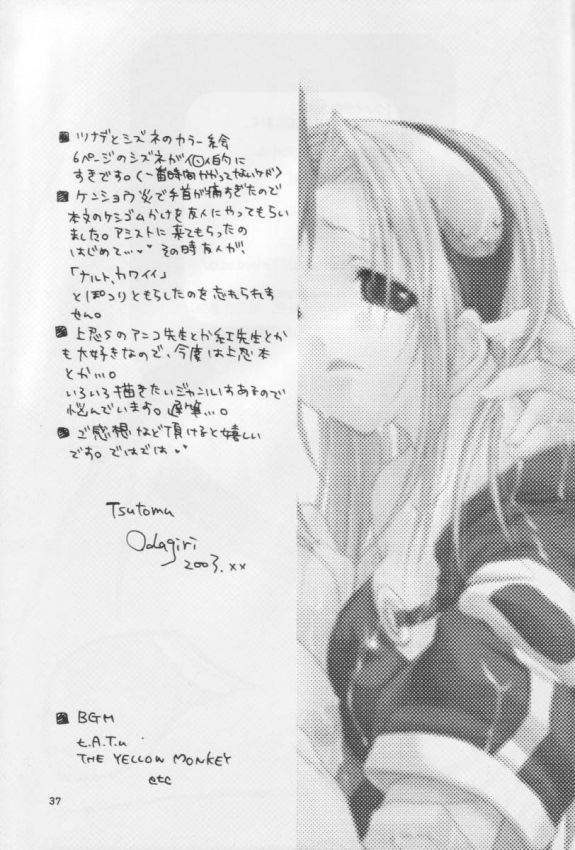 ツナデとシズネのカラー絵
6ページのシズネが個人的に
すきです。(一番時間かかってないケド)
ケンショウ炎で手首が痛すぎたので
本文のケシゴムかけを友人にやってもらい
ました。アシストに来てもらったの
はじめて…♥ その時友人が、
「ナルト、カワイイ」
とぽつりともらしたのを忘れられま
せん。
上忍Sのアンコ先生とか紅先生とか
も大好きなので、今度は上忍本
とか…。
いろいろ描きたいジャンルはあるので
悩んでいます。遅筆…。
ご感想など頂けると嬉しい
です。ではでは♥
Tsutomu
Odagiri
2003.xx
BGM
t.A.T.u
THE YELLOW MONKEY
etc
37